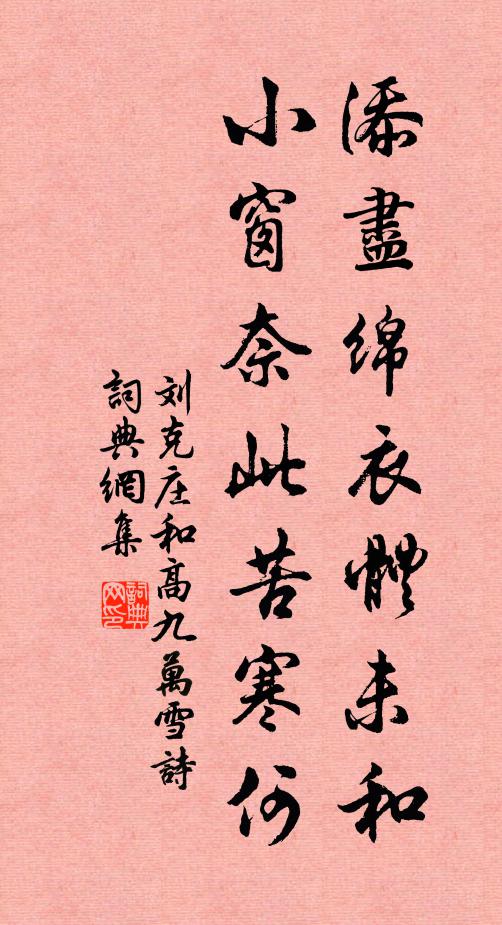 添盡綿衣體未和
小窗奈此苦寒何
刘克庄和高九萬雪詩
詞典網集
詞典網印